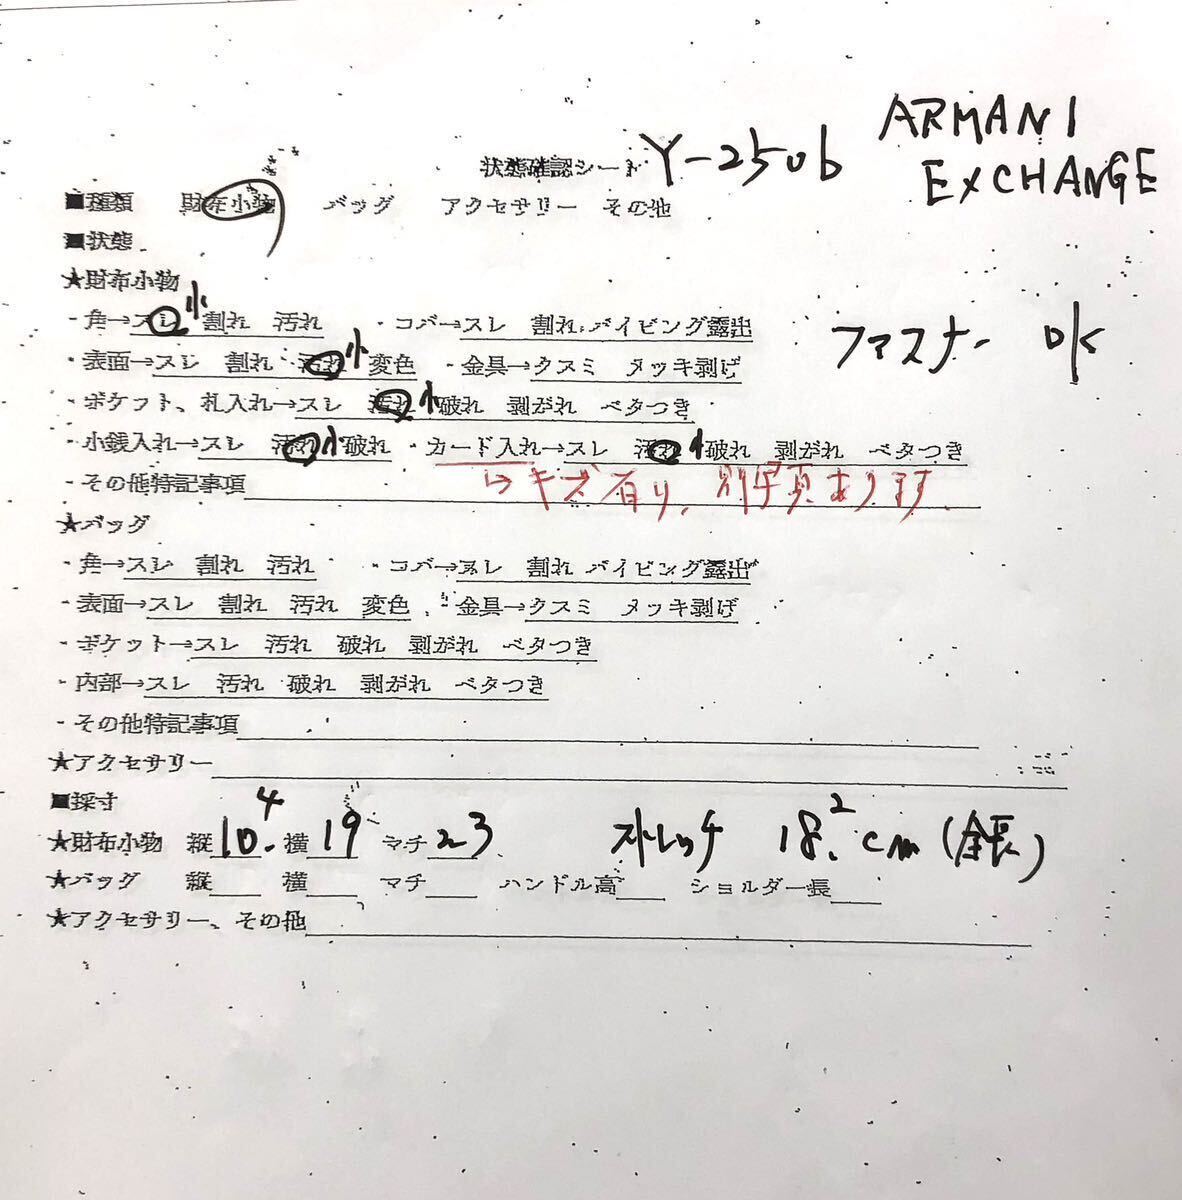 状態確認シート Y-2506 ARMANI EXCHANGE
■種類 財布小物 バッグ アクセサリー その他
■状態
★財布小物
・角→スレ小 割れ 汚れ ・コバ→スレ 割れ パイピング露出
ファスナー OK
・表面→スレ 割れ 汚れ小 変色 ・金具→クスミ メッキ剥げ
・ポケット、札入れ→スレ 汚れ小 破れ 剥がれ ベタつき
・小銭入れ→スレ 汚れ小 破れ ・カード入れ→スレ 汚れ小 破れ 剥がれ ベタつき
・その他特記事項 →キズ有り、別写真あります。
★バッグ
・角→スレ 割れ 汚れ ・コバ→スレ 割れ パイピング露出
・表面→スレ 割れ 汚れ 変色 ・金具→クスミ メッキ剥げ
・ポケット→スレ 汚れ 破れ 剥がれ ベタつき
・内部→スレ 汚れ 破れ 剥がれ ベタつき
・その他特記事項
★アクセサリー
■採寸
★財布小物 縦10.4 横19 マチ2.3 ストレッチ 18.2cm(全長)
★バッグ 縦 横 マチ ハンドル高 ショルダー長
★アクセサリー、その他